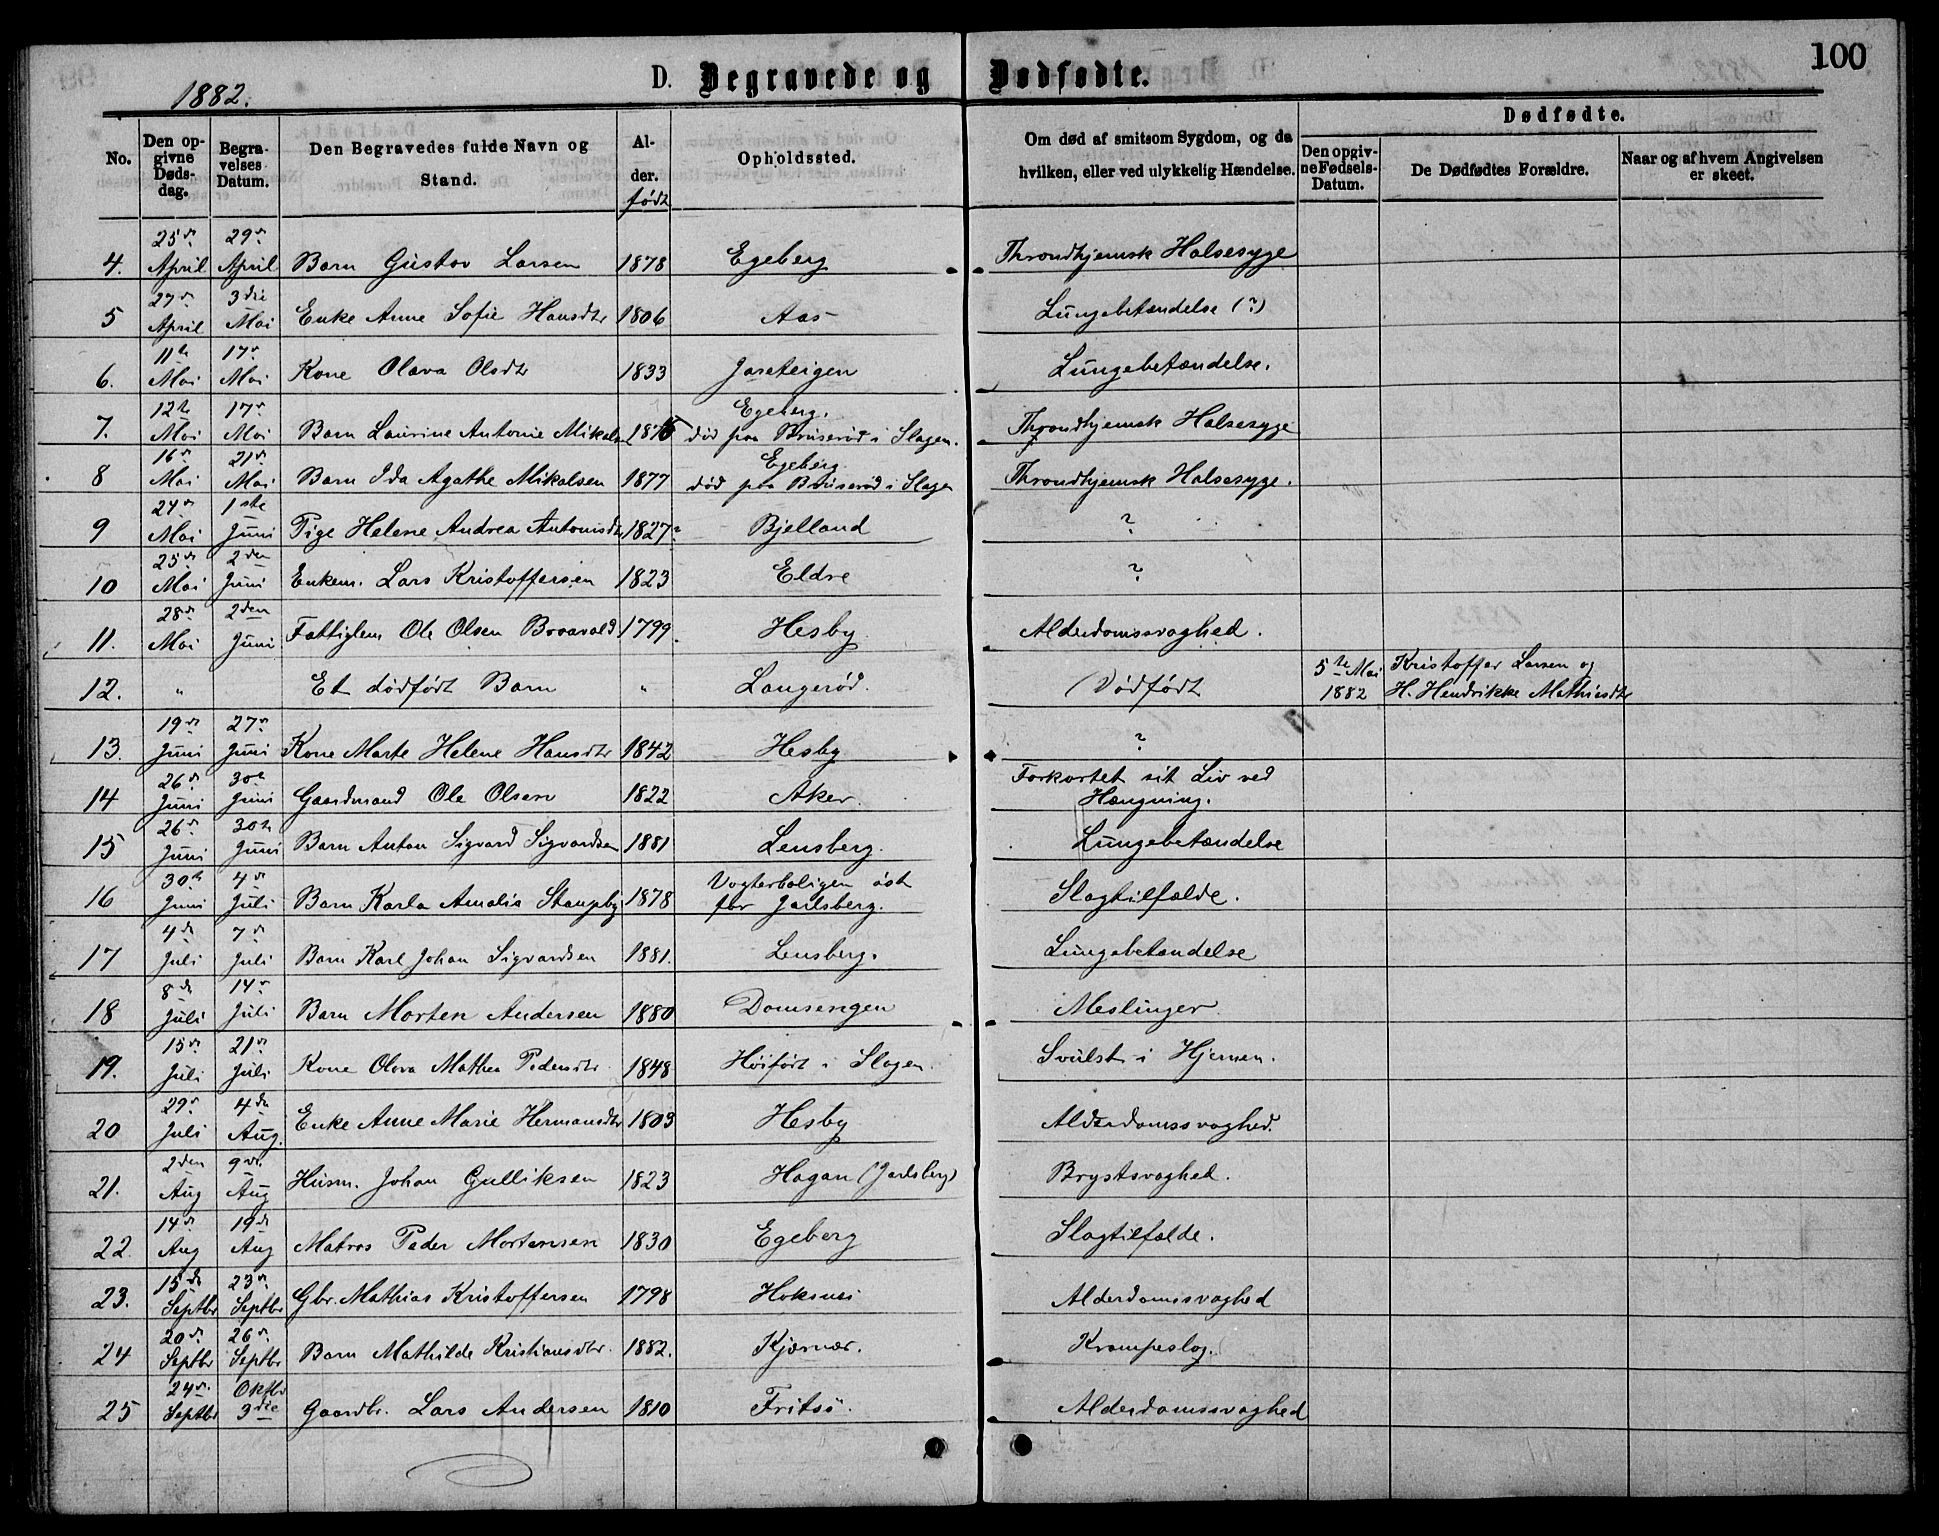 100
1882.
D. Begravede og Dødfødte.
No.
Den opgivne Dødsdag.
Begravelses Datum.
Den Begravedes fulde Navn og Stand.
Alder. født
Opholdssted.
Om død af smitsom Sygdom, og da hvilken, eller ved ulykkelig Hændelse.
Dødfødte.
Den opgivne Fødsels-Datum.
De Dødfødtes Forældre.
Naar og af hvem Angivelsen er skeet.
4. 25de April 29de April Barn Gustav Larsen 1878 Egeberg Throndhjemsk Halsesyge
5 27de April 3die Mai Enke Anne Sofie Hansdtr 1806 Aas Lungebetændelse (?)
6. 11te Mai 17de Mai Kone Olava Olsdtr 1833 Jareteigen Lungebetændelse.
7. 12te Mai 17de Mai Barn Laurine Antonie Mikals. 1875 Egeberg. død paa Bruserød i Slagen. Throndhjemsk Halsesyge
8 16de Mai 21de Mai Barn Ida Agathe Mikalsen 1877 Egeberg død paa Bruserød i Slagen Throndhjemsk Halsesyge.
9 24de Mai 1ste Juni Pige Helene Andrea Antonisdtr 1827? Bjelland ?
10 25de Mai 2den Juni Enkem. Lars Kristoffersen 1823 Eldre ?
11. 28de Mai 2den Juni Fattiglem Ole Olsen Braavold 1799. Hesby Alderdomssvaghed.
12. " Et dødfødt Barn " Langerød. Dødfødt 5te Mai 1882 Kristoffer Larsen og H. Hendrikke Mathiasdtr
13. 19de Juni 27de Juni Kone Marte Helene Hansdtr 1842 Hesby ?
14 26de Juni 30te Juni Gaardmand Ole Olsen 1822 Aker. Forkortet sit Liv ved Hængning.
15 26de Juni 30te Juni Barn Anton Sigvard Sigvardsen 1881 Lensberg. Lungebetændelse
16 30te Juni 4de Juli Barn Karla Amalia Stangeby 1878 Vogterboligen øst for Jarlsberg. Slagtilfælde.
17 4de Juli 7de Juli Barn Karl Johan Sigvardsen 1881. Lensberg. Lungebetændelse
18 8de Juli 14de Juli Barn Morten Andersen 1880 Domsengen Meslinger.
19. 15de Juli 21de Juli Kone Olava Mathea Pedersdtr. 1848 Høifødt i Slagen. Svulst i Hjernen.
20 29de Juli 4de Aug. Enke Anne Marie Hermansdtr 1803 Hesby Alderdomssvaghed.
21. 2den Aug 9de Aug Husm. Johan Gulliksen 1823 Hagan (Jarlsberg) Brystsvaghed.
22. 14de Aug 19de Aug Matros Peder Mortensen 1830 Egeberg Slagtilfælde.
23. 15de Septbr 23de Septbr Gbr. Mathias Kristoffersen 1798 Hoksnes Alderdomssvaghed
24 20de Septbr 26de Septbr Barn Mathilde Kristiansdtr. 1882. Kjærnær. Krampeslag.
25 24de Septbr Oktbr 3die Gaardbr. Lars Andersen 1810 Fritsø. Alderdomssvaghed